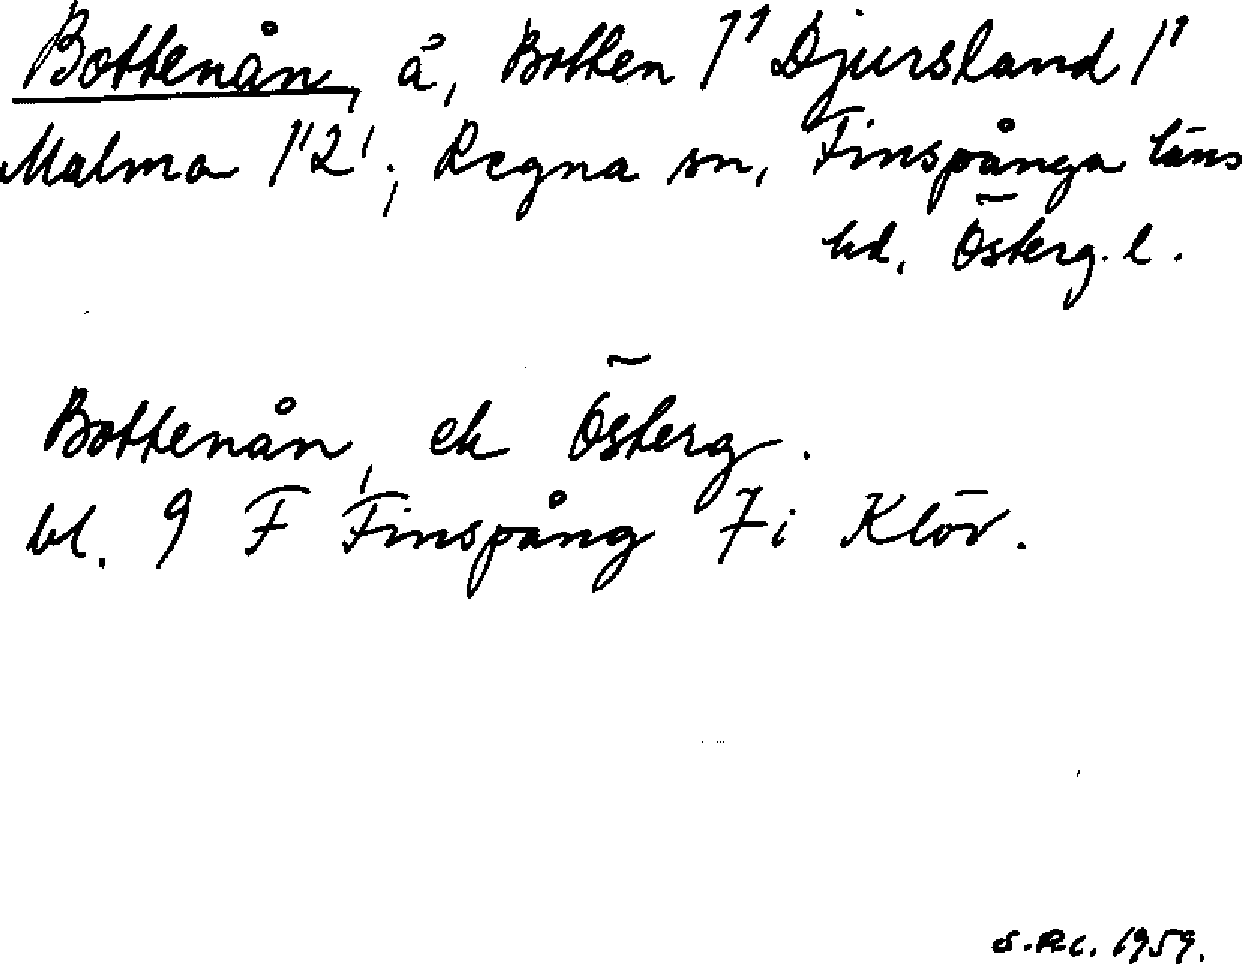 Bottenån, å, Botten 1¹ Djursland 1¹
Malma 1¹2¹; Regna sn, Finspånga läns
hd, Österg. l.
Bottenån, ek Österg.
bl. 9 F Finspång 7i Klöv.
1959.